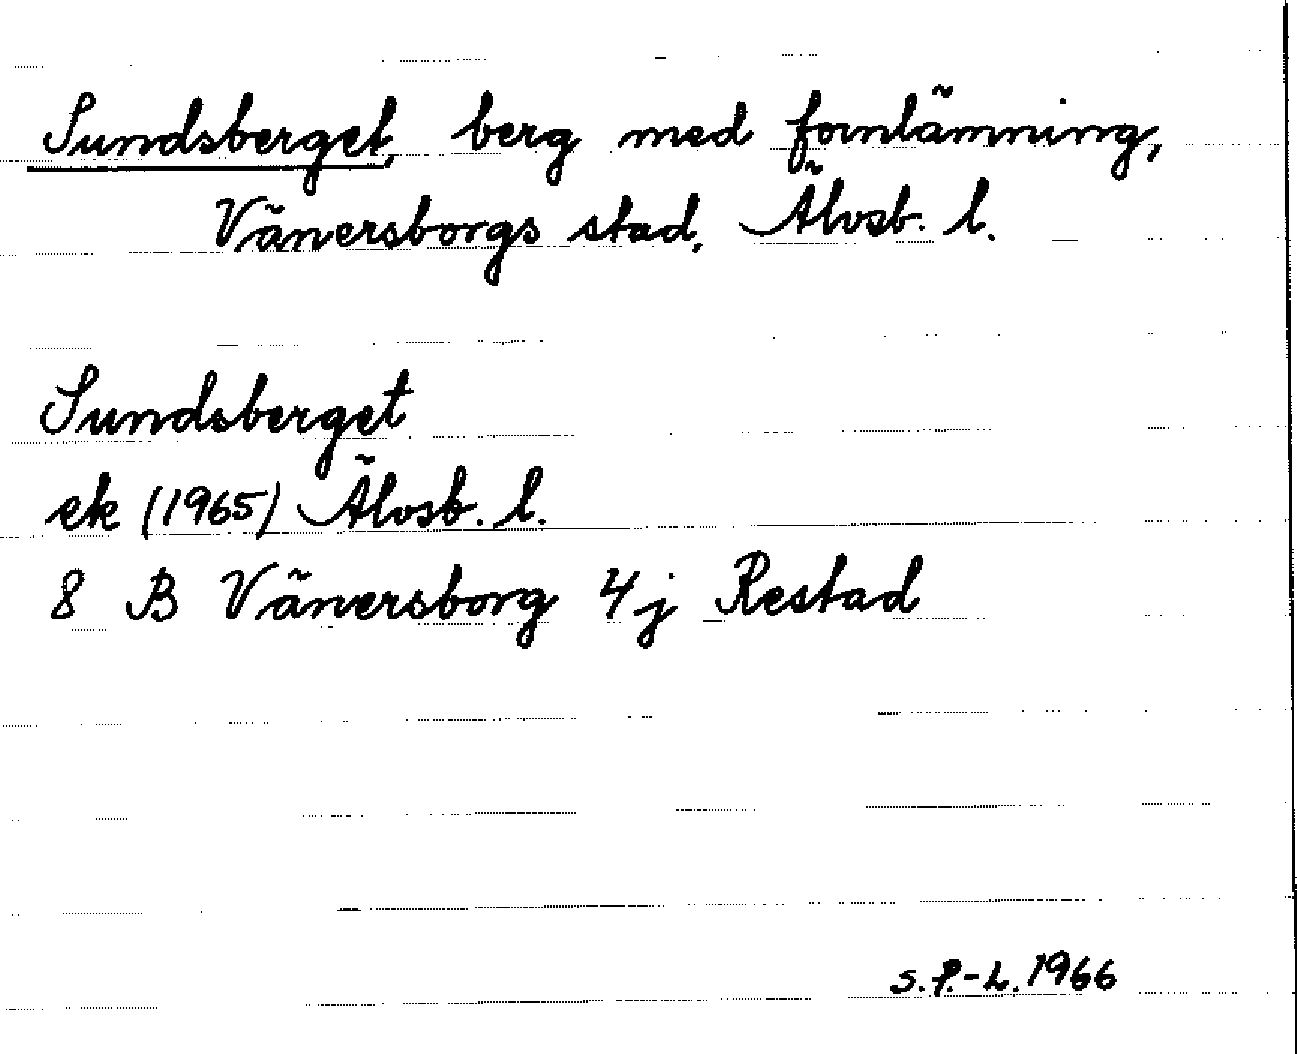 Sundsberget, berg med fornlämning,
Vänersborgs stad, Älvsb. l.
Sundsberget
ek (1965) Älvsb. l.
8 B Vänersborg 4j Restad
S.P.-L. 1966